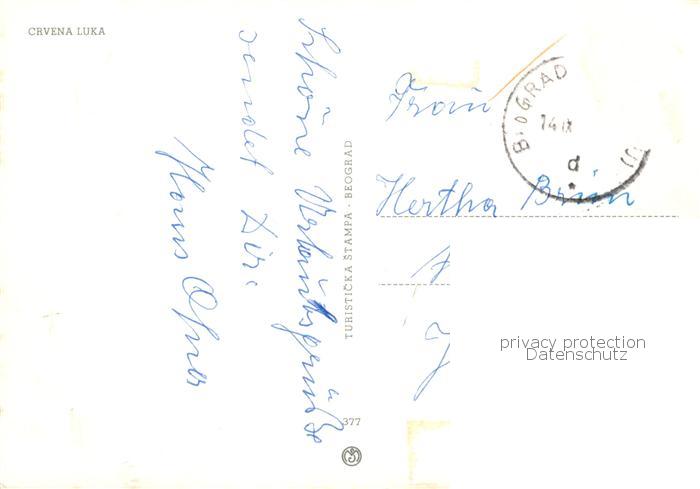 CRVENA LUKA
Schöne Urlaubsgrüße
sendet Dir
TURISTIČKA ŠTAMPA - BEOGRAD
377
BIOGRAD
14 IX
d
Frau
Hertha Brün
privacy protection
Datenschutz